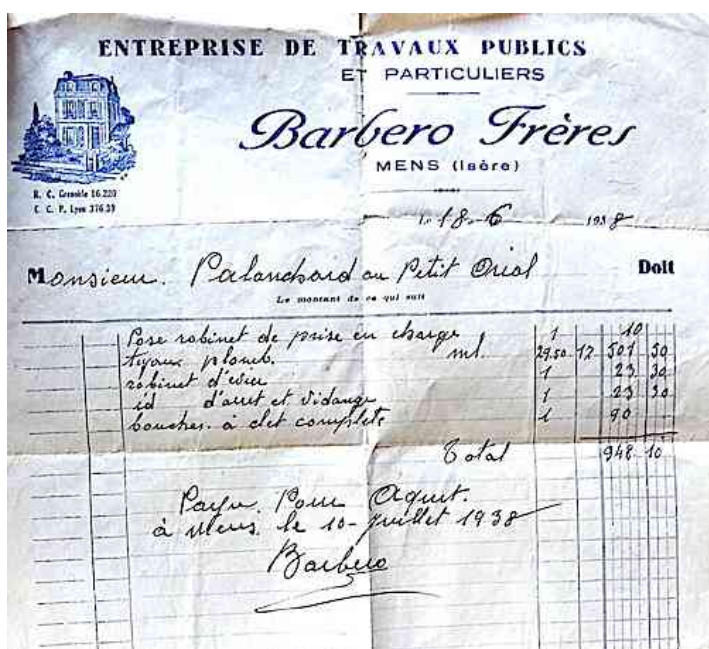 ENTREPRISE DE TRAVAUX PUBLICS
ET PARTICULIERS
Barbero Frères
MENS (Isère)
R. C. Grenoble 16.220
C. C. P. Lyon 376.39
18-6 1938
Monsieur. Palanchard au Petit Oriol Doit
Le montant de ce qui suit
Pose robinet de prise en charge 1 10
tyaux plomb. ml 29.50 17 501 50
robinet d'evier 1 23 30
id d'arret et vidange 1 23 30
bouches à clet complets 1 90
Total 948 10
Payu. Pour Aquit.
à Mens. le 10- juillet 1938
Barbero